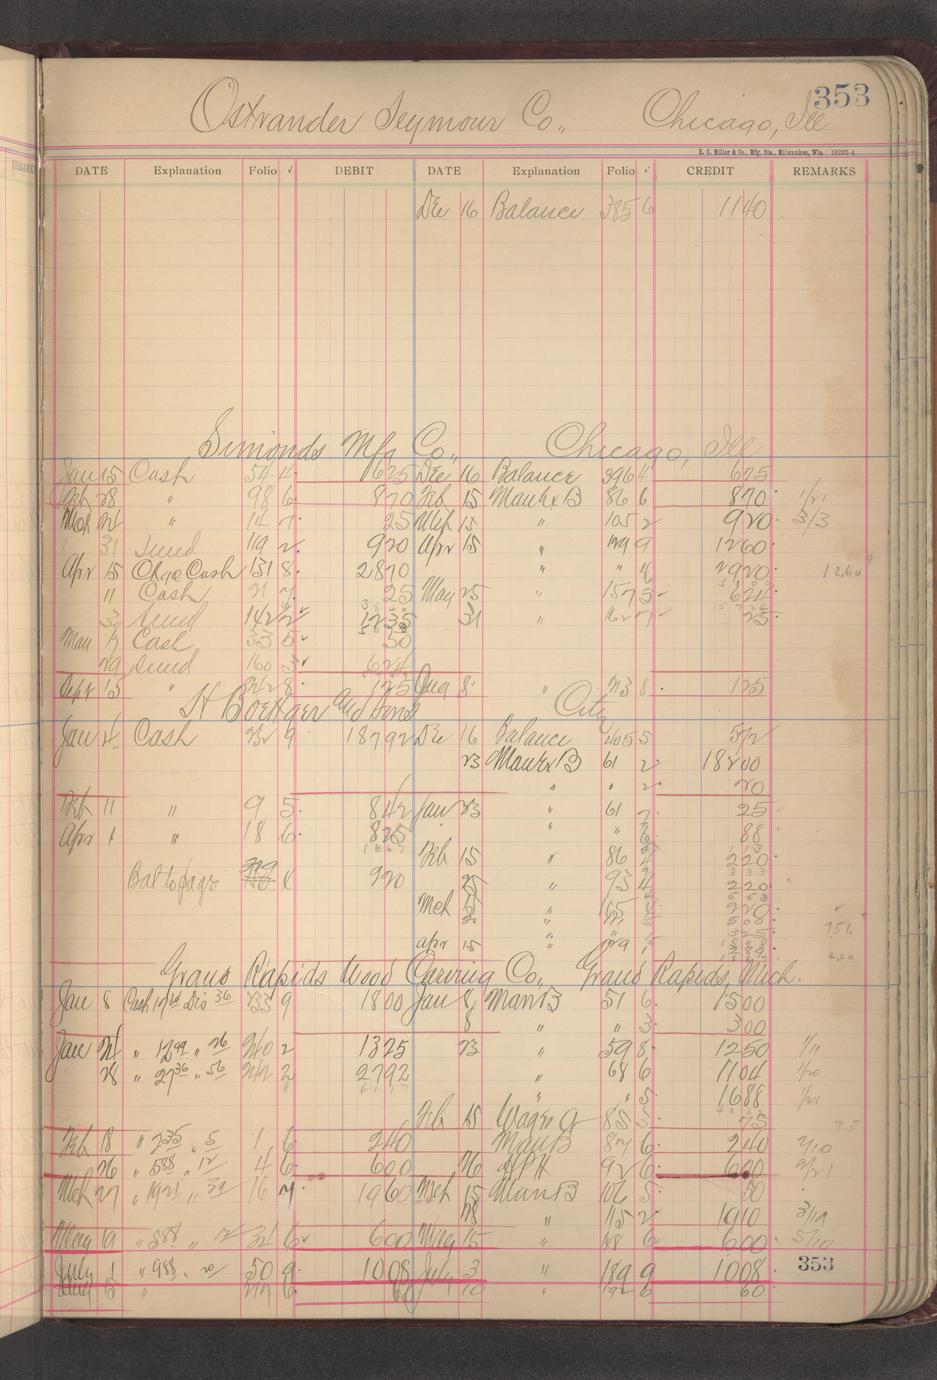 353
Ostrander Seymour Co., Chicago, Ill
REMARKS
H. C. Miller & Co., Mfg. Sta., Milwaukee, Wis. 18222-4
DATE Explanation Folio √ DEBIT DATE Explanation Folio √ CREDIT REMARKS
Dec 16 Balance 385 6 1140
Simonds Mfg Co., Chicago, Ill
Jan 15 Cash 54 4 1625 Dec 16 Balance 396 4 625
Feb 28 " 98 6 870 Feb 15 ManExB 86 6 870 1/21
Mch 24 " 114 7 25 Mch 15 " 105 2 920 3/3
31 Sund 119 2 920 Apr 15 " 129 9 1260
Apr 15 Chge Cash 131 8 2870 " " 4 2920 1260
11 Cash 21 7 25 May 25 " 157 5 624
30 Sund 142 2 1235 31 " 162 7 25
May 7 Cash 33 5 50
29 Sund 160 3 624
Sept 15 " 242 8 125 Aug 8 " 213 8 125
H Boettger and Sons City
Jan 4 Cash 232 9 18792 Dec 16 Balance 405 5 572
23 ManExB 61 2 18200
" " 2 20
Feb 11 " 9 5 842 Jan 23 " 61 7 25
Apr 1 " 18 6 825 " " 88
Feb 15 " 86 4 220
Bal to page 920 25 " 93 4 220
Mch 5 " 165 220
" 508
756
Apr 15 "
2.20
Grand Rapids Wood Carving Co., Grand Rapids, Mich.
Jan 8 Cash Dis 36 235 9 1800 Jan 8 ManB 51 6 1500
8 " " 3 300
Jan 24 " 12 99 " 26 240 2 1325 23 " 59 8 1250 1/11
28 " 27 36 " 56 242 2 2792 " 68 6 1104 1/20
" " 5 1688
Feb 15 Wagner 85 3 75
Feb 18 " 235 " 5 1 6 240 ManB 87 6 240 2/10
26 " 588 " 12 4 6 600 26 92 6 600 2/21
Mch 27 " 1921 " 39 16 7 1960 Mch 15 ManB 106 5 50
28 " 115 2 1910 3/19
May 19 " 588 " 12 6 600 May 15 " 6 600 5/10
July 1 " 988 " 20 50 9 1008 July 3 " 189 9 1008
353
" 6 60 10 " 192 6 60